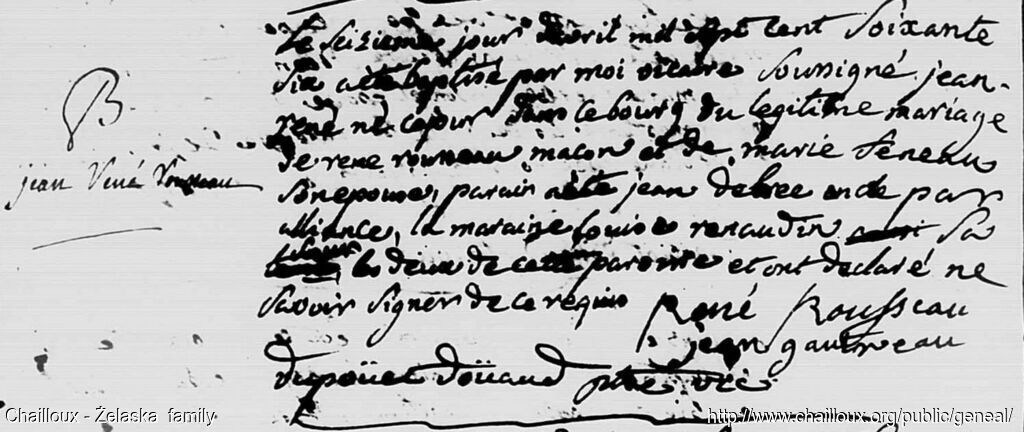 Le seizieme jour d'avril mil sept cent soixante
six a ete baptisé par moi vicaire soussigné jean
rené né ce jour dans ce bourg du legitime mariage
de rene rousseau maçon et de marie seneau
B
jean rené rousseau
son epouse, parain a ete jean debree oncle par
alliance, la maraine louise renaudin sa
les deux de cette paroisse et ont declaré ne
savoir signer de ce requis René Rousseau
jean gautreau
Dupoüet doüaud ptre vic
Chailloux - Żelaska family
http://www.chailloux.org/public/geneal/